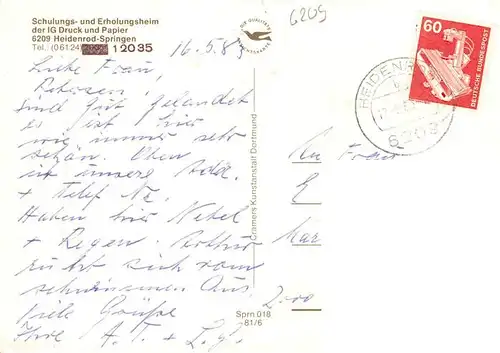 Schulungs- und Erholungsheim
der IG Druck und Papier
6209 Heidenrod-Springen
Tel. (06124) 12035
16.5.83
6209
DIE QUALITÄTS
60
DEUTSCHE BUNDESPOST
HEIDENR
6209
Liebe Frau,
sind gut gelandet
es ist hier
wie immer sehr
schön. Oben
ist unsere Adr.
+ Telef Nr.
Haben hier Nebel
+ Regen. Arthur
ruht sich vom
schwimmen aus.
viele Grüße
Ihre A. T. + L. G.
An Frau
E
Mar
2000
Cramers Kunstanstalt Dortmund
Sprn 018
-81/6